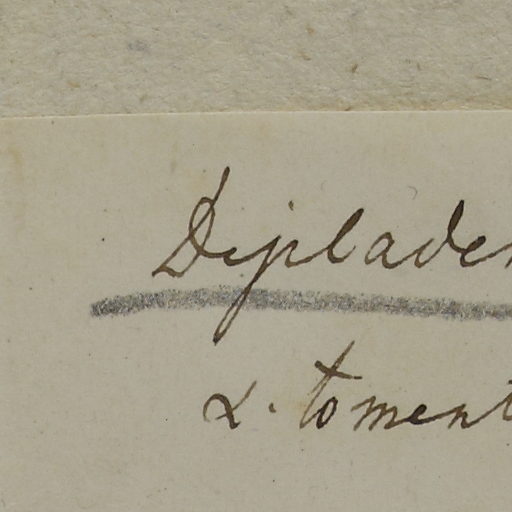 Dipladen
α. toment